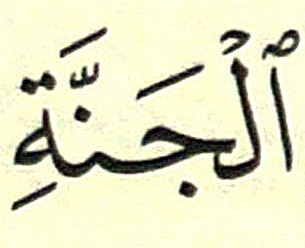 ٱلْجَنَّةِ